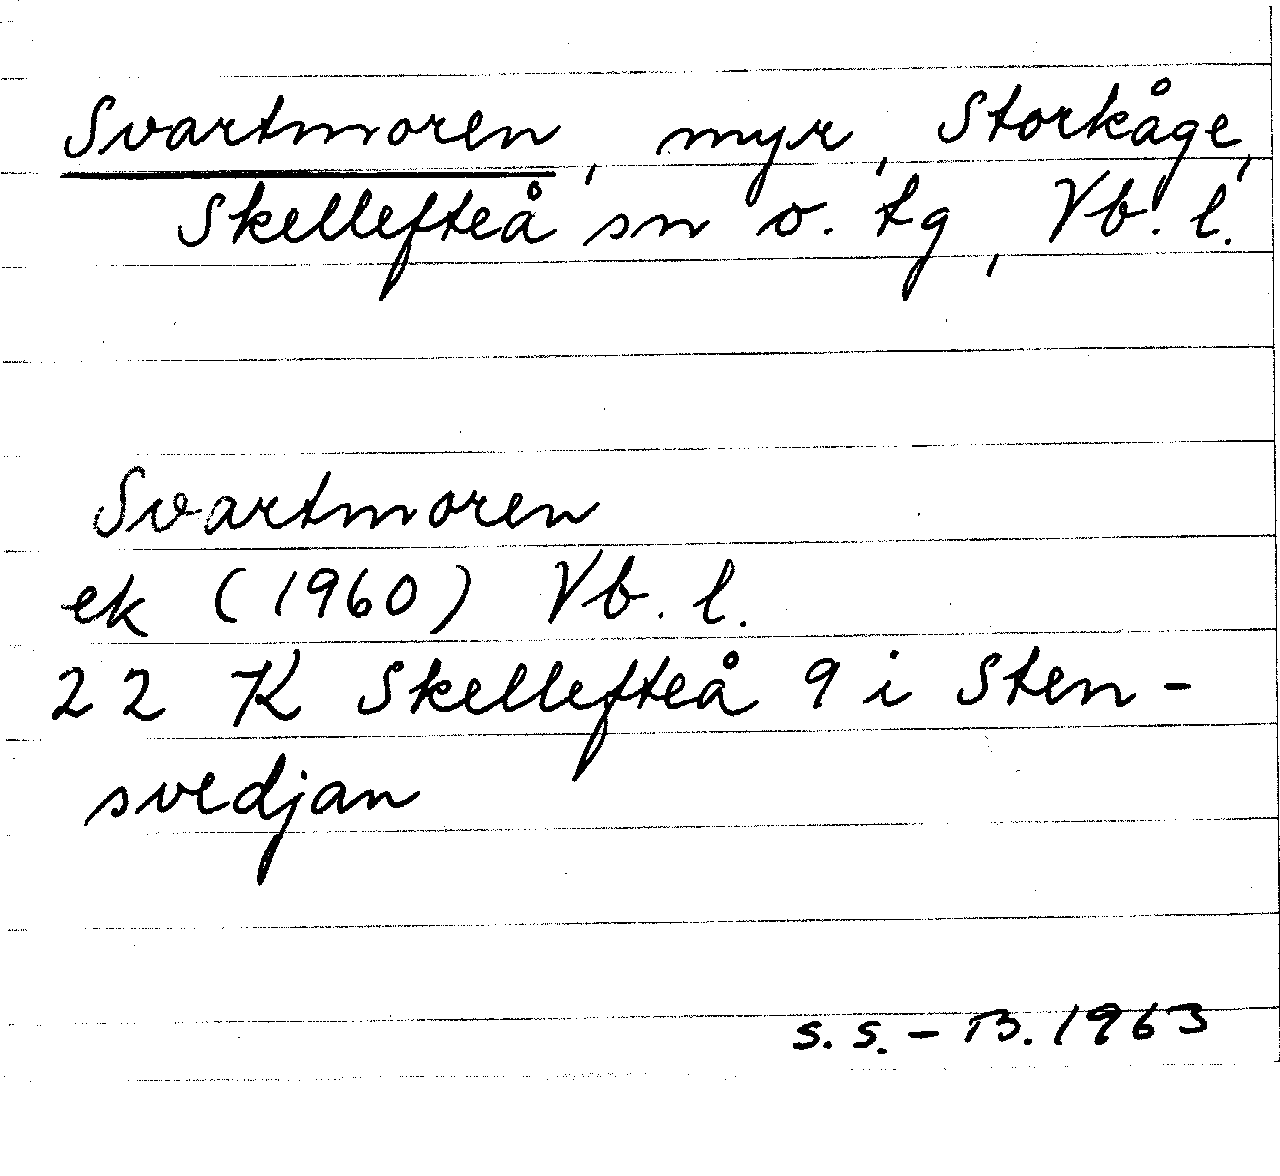 Svartmoren, myr, Storkåge,
Skellefteå sn o. tg, Vb. l.
Svartmoren
ek (1960) Vb. l.
22 K Skellefteå 9 i Sten-
svedjan
S. S. - B. 1963